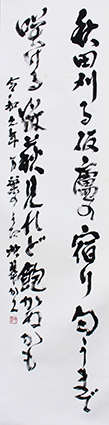 秋田刈る仮廬の宿り匂ふまで
咲ける秋萩見れど飽かぬかも
令和元年 万葉のうた